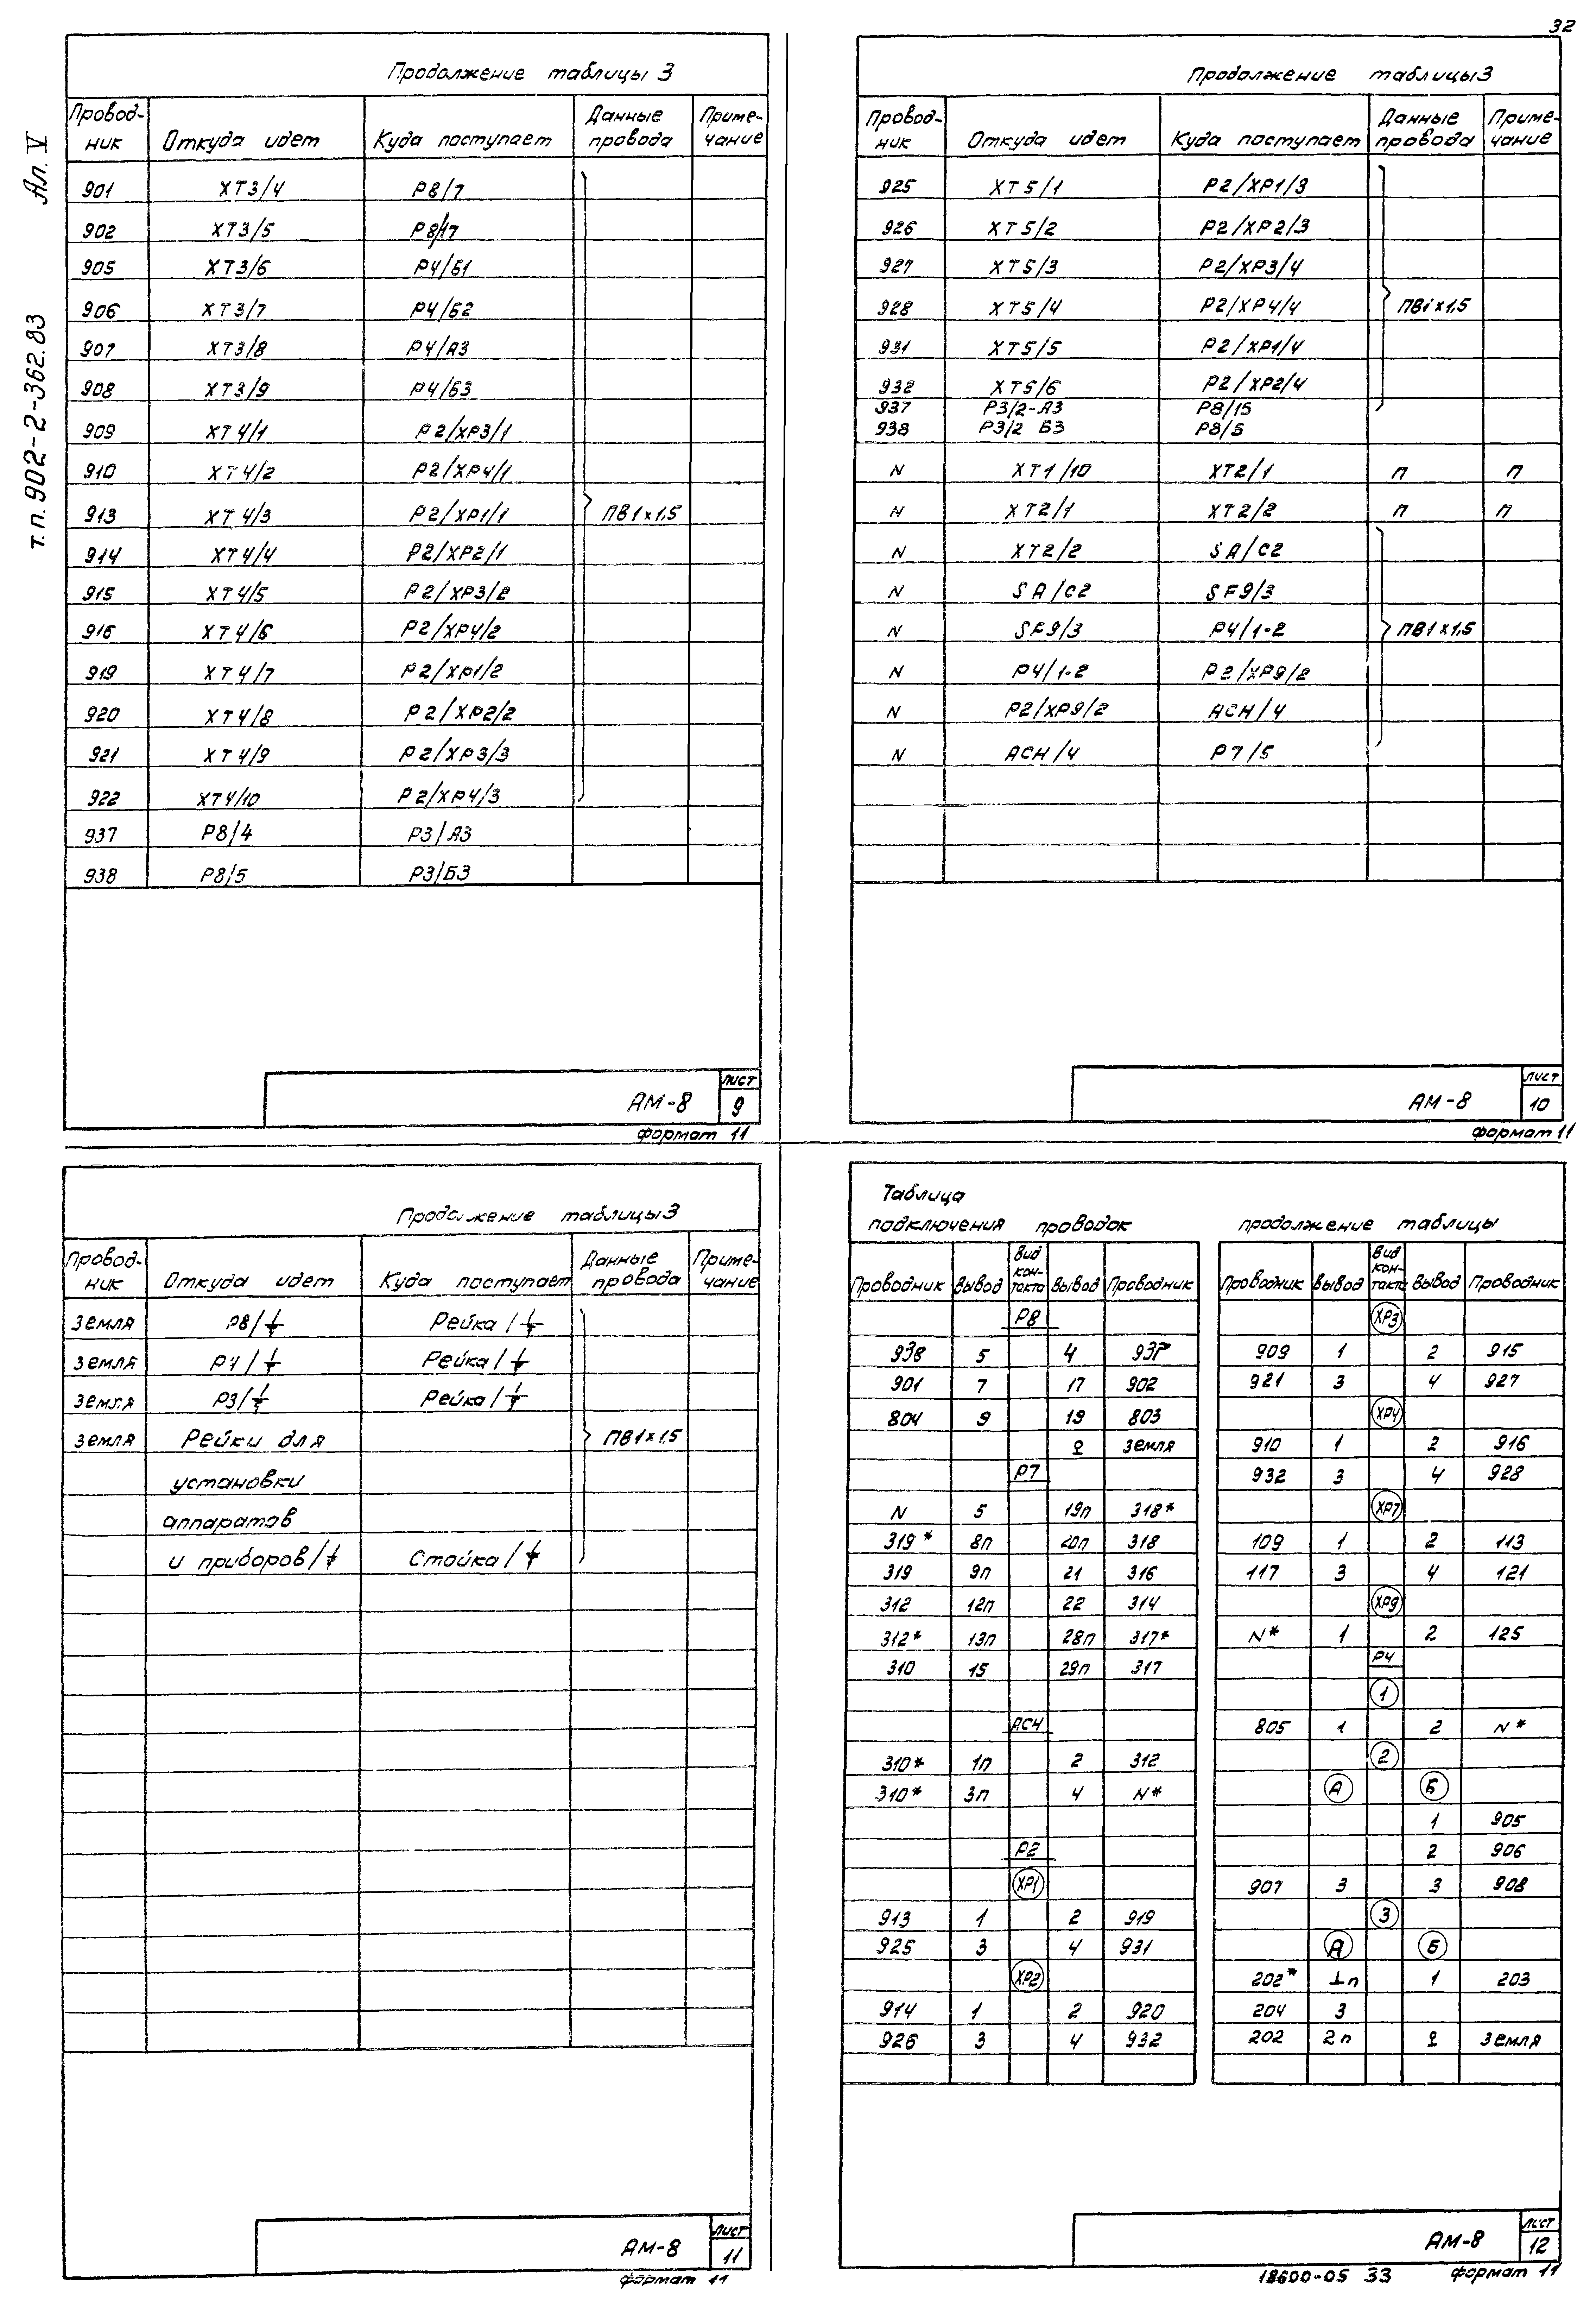 32
Ал. V
т.п. 902-2-362.83
Продолжение таблицы 3
Провод-ник Откуда идет Куда поступает Данные провода Приме-чание
901 ХТ3/4 Р8/7
902 ХТ3/5 Р8/17
905 ХТ3/6 Р4/Б1
906 ХТ3/7 Р4/Б2
907 ХТ3/8 Р4/А3
908 ХТ3/9 Р4/Б3
909 ХТ4/1 Р2/ХР3/1
910 ХТ4/2 Р2/ХР4/1
913 ХТ4/3 Р2/ХР1/1 ПВ1х1,5
914 ХТ4/4 Р2/ХР2/1
915 ХТ4/5 Р2/ХР3/2
916 ХТ4/6 Р2/ХР4/2
919 ХТ4/7 Р2/ХР1/2
920 ХТ4/8 Р2/ХР2/2
921 ХТ4/9 Р2/ХР3/3
922 ХТ4/10 Р2/ХР4/3
937 Р8/4 Р3/А3
938 Р8/5 Р3/Б3
АМ-8 лист 9
формат 11
Продолжение таблицы 3
Провод-ник Откуда идет Куда поступает Данные провода Приме-чание
925 ХТ5/1 Р2/ХР1/3
926 ХТ5/2 Р2/ХР2/3
927 ХТ5/3 Р2/ХР3/4
928 ХТ5/4 Р2/ХР4/4 ПВ1х1,5
931 ХТ5/5 Р2/ХР1/4
932 ХТ5/6 Р2/ХР2/4
937 Р3/2-А3 Р8/15
938 Р3/2 Б3 Р8/5
N ХТ1/10 ХТ2/1 П П
N ХТ2/1 ХТ2/2 П П
N ХТ2/2 SA/С2
N SA/С2 SF9/3
N SF9/3 Р4/1-2 ПВ1х1,5
N Р4/1-2 Р2/ХР9/2
N Р2/ХР9/2 АСН/4
N АСН/4 Р7/5
АМ-8 лист 10
формат 11
Продолжение таблицы 3
Провод-ник Откуда идет Куда поступает Данные провода Приме-чание
земля Р8/⏚ Рейка/⏚
земля Р4/⏚ Рейка/⏚
земля Р3/⏚ Рейка/⏚
земля Рейки для ПВ1х1,5
установки
аппаратов
и приборов/⏚ Стойка/⏚
АМ-8 лист 11
формат 11
Таблица
подключения проводок
Проводник Вывод Вид кон-такта Вывод Проводник
Р8
938 5 4 937
901 7 17 902
804 9 19 803
⏚ земля
Р7
N 5 19п 318*
319* 8п 20п 318
319 9п 21 316
312 12п 22 314
312* 13п 28п 317*
310 15 29п 317
АСН
310* 1п 2 312
310* 3п 4 N*
Р2
ХР1
913 1 2 919
925 3 4 931
ХР2
914 1 2 920
926 3 4 932
продолжение таблицы
Проводник Вывод Вид кон-такта Вывод Проводник
ХР3
909 1 2 915
921 3 4 927
ХР4
910 1 2 916
932 3 4 928
ХР7
109 1 2 113
117 3 4 121
ХР9
N* 1 2 125
Р4
1
805 1 2 N*
2
А Б
1 905
2 906
907 3 3 908
3
А Б
202* 1п 1 203
204 3
202 2п ⏚ земля
АМ-8 лист 12
18600-05 33 формат 11